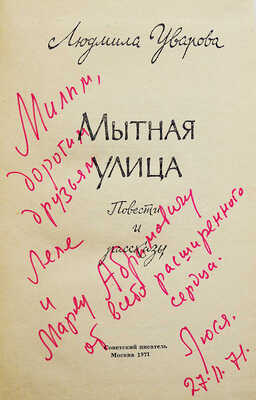 Людмила Уварова
МЫТНАЯ
УЛИЦА
Повести
и
рассказы
Милым,
дорогим
друзьям
Леле
и
Марку Абрамовичу
от всего расширенного
сердца.
Люся.
27.II.71.
Советский писатель
Москва 1971